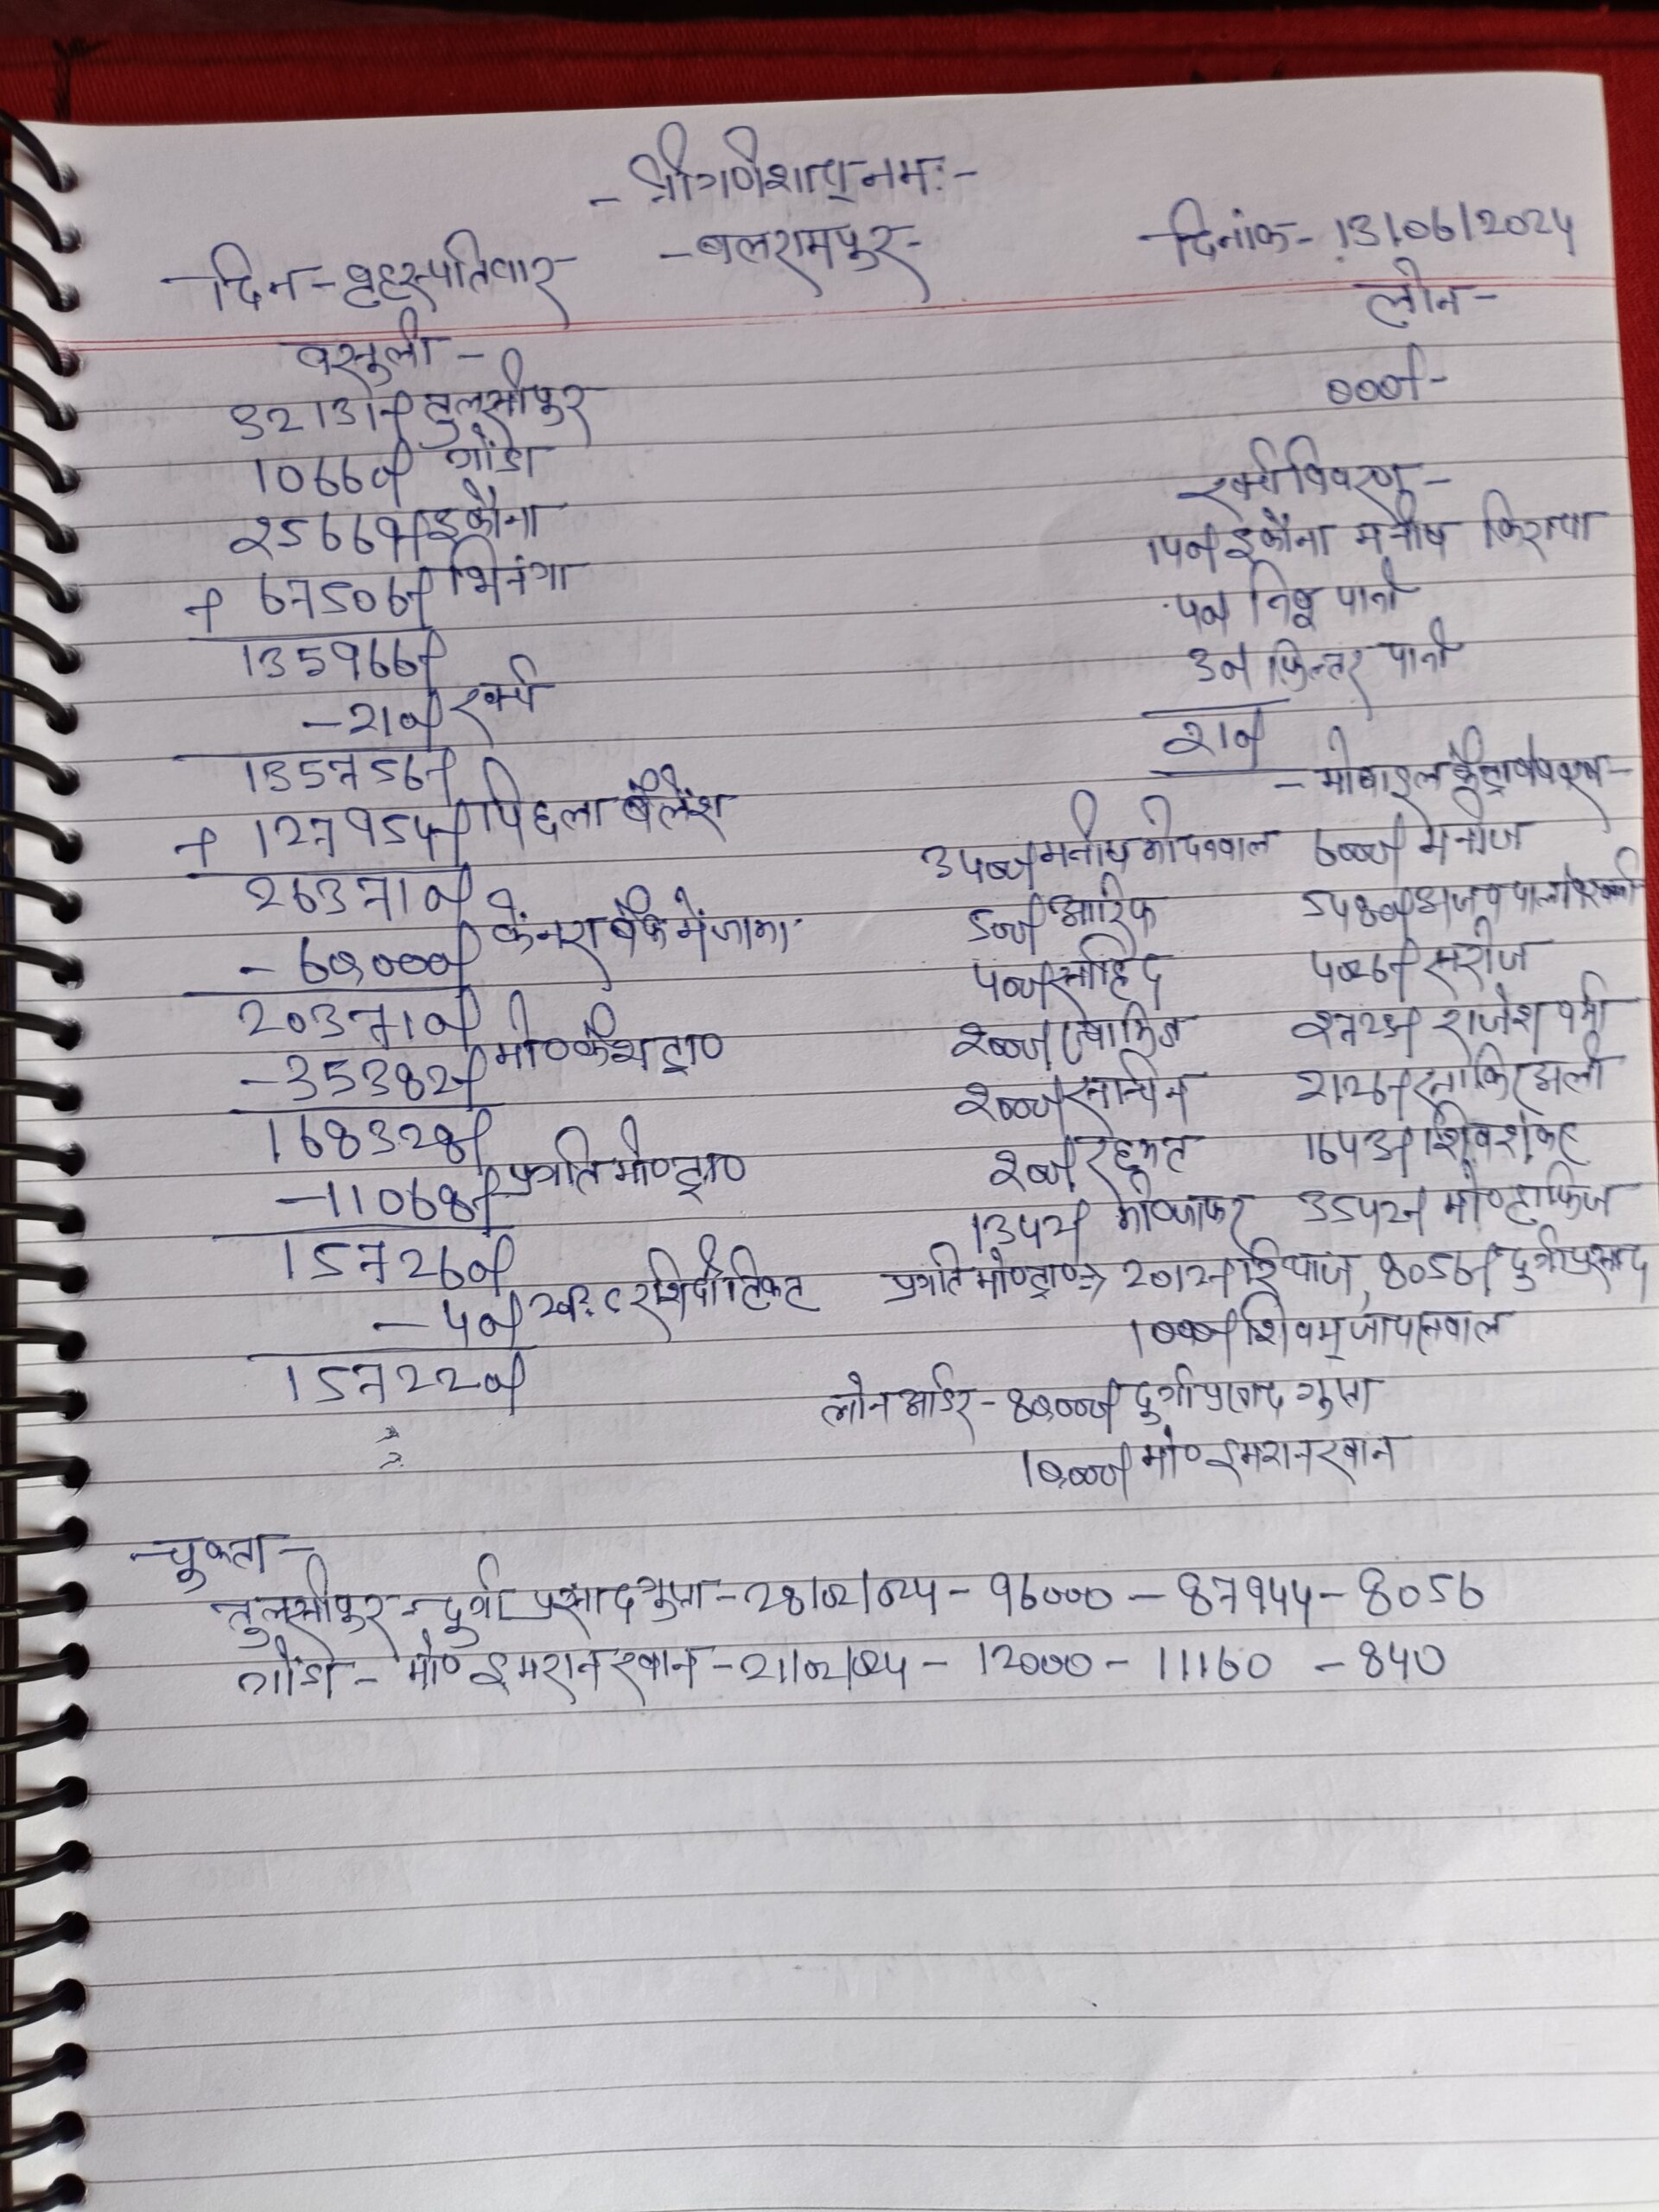 - श्री गणेशाय् नमः -
दिन - बृहस्पतिवार - बलरामपुर - दिनांक - 13/06/2024
वसुली - लोन -
32131/- तुलसीपुर 000/-
10660/- गोंडा
25669/- इकौना खर्च विवरण -
+ 67506/- भिनंगा 140/- इकौना मनीष किराया
135966/- 40/- निबू पानी
- 210/- खर्च 30/- फिल्टर पानी
135756/- 210/-
+ 127954/- पिछला बैलेंश - मोबाइल
263710/- 3400/- मनीष 6000/- मनोज
- 60,000/- केनरा बैंक में जामा 500/- आरिफ 5480/- अजय
203710/- 400/- साहिद 4026/- सरोज
- 35382/- मो० कैश ट्रा० 2000/- 2723/- राजेश वर्मा
168328/- 2000/- 2126/- साकिर अली
- 11068/- प्रगति मो० ट्रा० 200/- 1643/- शिवशंकर
157260/- 1342/- मो० जाफर 3542/- मो०
- 40/- रशिदी टिकट प्रगति मो० ट्रा० → 2012/- रियाज, 8056/- दुर्गा प्रसाद
157220/- 1000/- शिवम्
लोन आर्डर - 80,000/- दुर्गा प्रसाद गुप्ता
10,000/- मो० इमरान खान
- चुकता -
तुलसीपुर - दुर्गा प्रसाद गुप्ता - 28/02/024 - 96000 - 87944 - 8056
गोंडा - मो० इमरान खान - 21/02/024 - 12000 - 11160 - 840